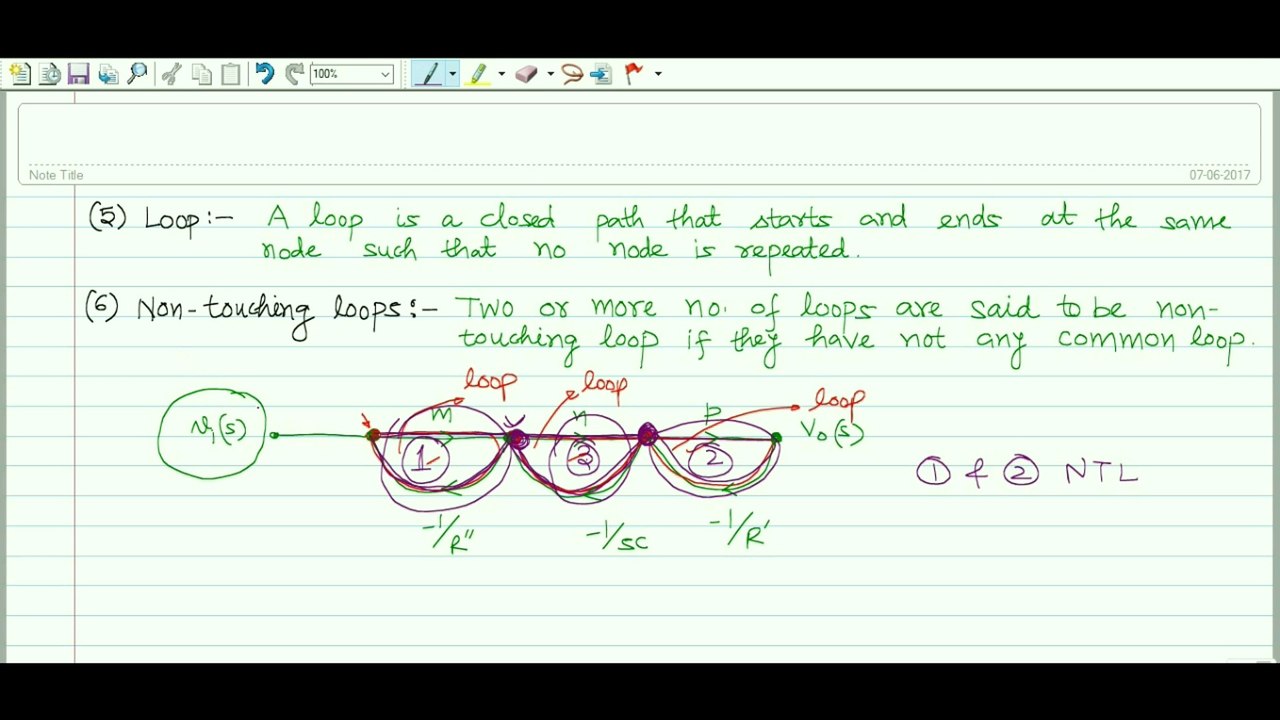 100%
Note Title
07-06-2017
(5) Loop:- A loop is a closed path that starts and ends at the same
node such that no node is repeated.
(6) Non-touching loops:- Two or more no. of loops are said to be non-
touching loop if they have not any common loop.
loop loop loop
m n p
V₁(s) V₀(s)
1 3 2
① & ② NTL
-1/R'' -1/SC -1/R'